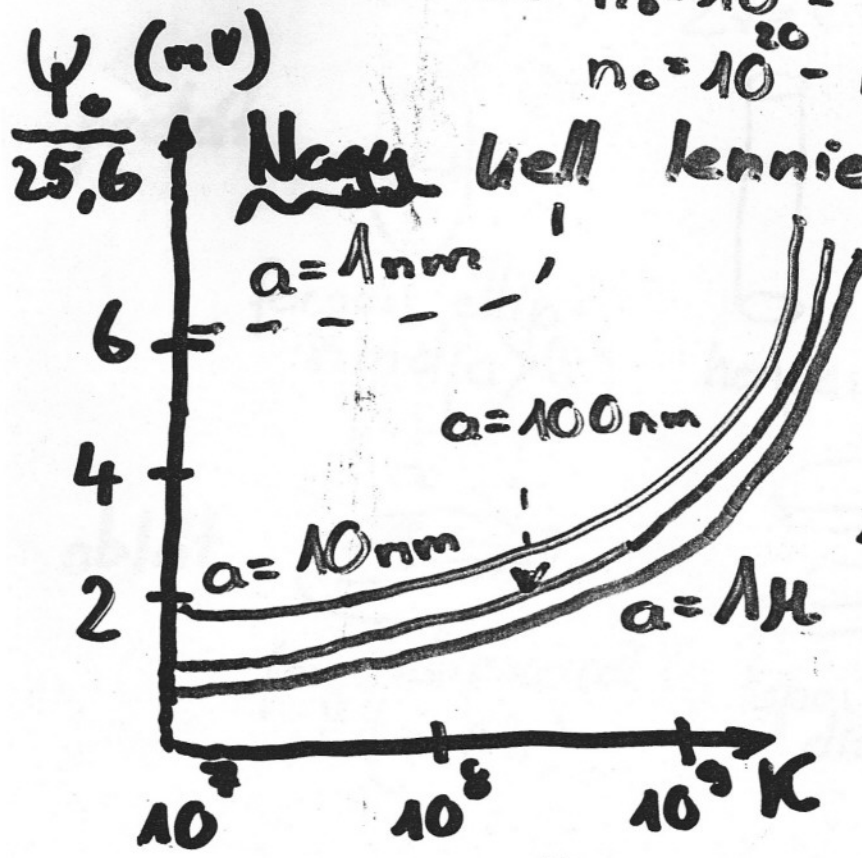 ψ₀ (mV)
25,6
n₀=10²⁰-
Nagy kell lennie
a=1nm
6
a=100nm
4
a=10nm
2
a=1μ
10⁷ 10⁸ 10⁹ K